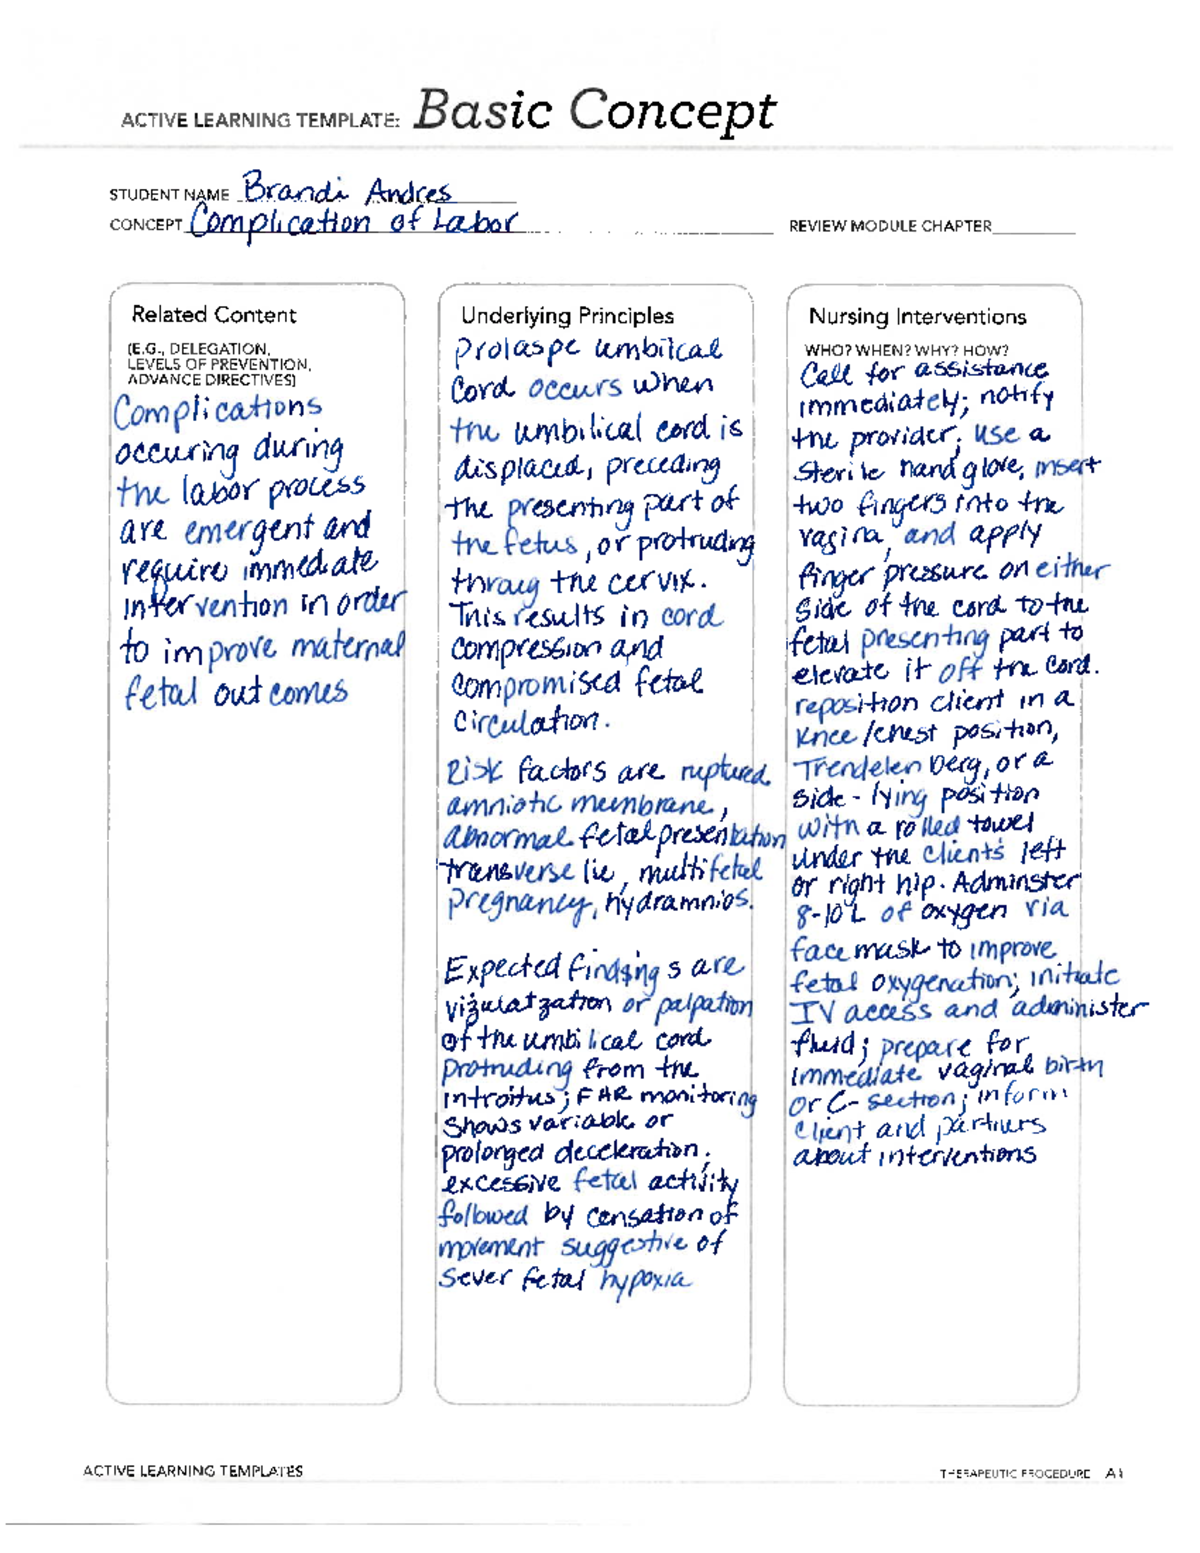 ACTIVE LEARNING TEMPLATE: Basic Concept
STUDENT NAME Brandi Andres
CONCEPT Complication of Labor
REVIEW MODULE CHAPTER
Related Content
(E.G., DELEGATION,
LEVELS OF PREVENTION,
ADVANCE DIRECTIVES)
Complications
occuring during
the labor process
are emergent and
require immediate
intervention in order
to improve maternal
fetal outcomes
Underlying Principles
Prolaspe umbilcal
Cord occurs when
the umbilical cord is
displaced, preceding
the presenting part of
the fetus, or protruding
throug the cervix.
This results in cord
compression and
compromised fetal
circulation.
Risk factors are ruptured
amniotic meembrane,
abnormal fetal presentation
transverse lie, multifetal
pregnancy, hydramnios.
Expected findings are
vizulatzation or palpation
of the umbilical cord
protruding from the
introitus; FHR monitoring
shows variable or
prolonged deceleration;
excessive fetal activity
followed by censation of
movement suggestive of
sever fetal hypoxia
Nursing Interventions
WHO? WHEN? WHY? HOW?
Call for assistance
immediately; notify
the provider; use a
sterile hand glove, insert
two fingers into the
vagina, and apply
finger pressure on either
side of the cord to the
fetal presenting part to
elevate it off the cord.
reposition client in a
knee/chest position,
Trendelenberg, or a
side-lying position
with a rolled towel
under the clients left
or right hip. Adminster
8-10 L of oxygen via
face mask to improve
fetal oxygenation; initiate
IV access and administer
fluid; prepare for
immediate vaginal birth
or C-section; inform
client and partners
about interventions
ACTIVE LEARNING TEMPLATES
THERAPEUTIC PROCEDURE A1